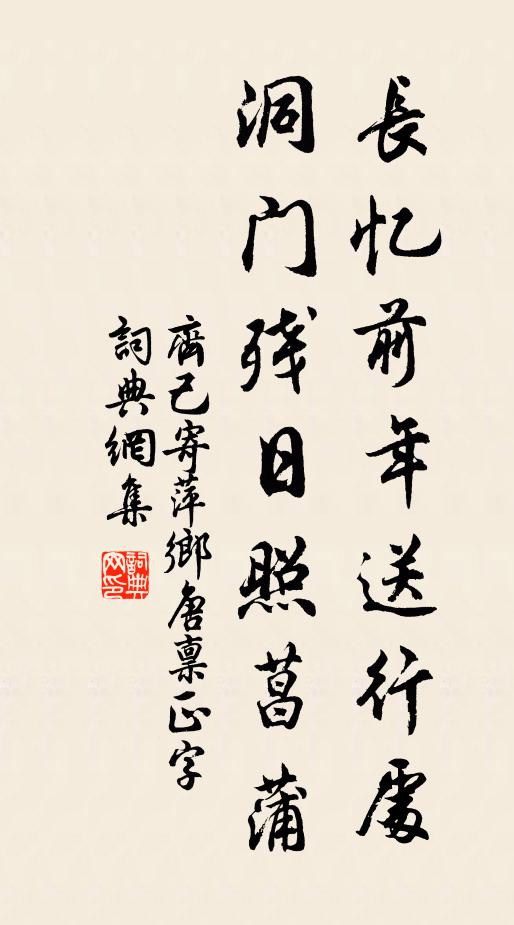 長忆前年送行處
洞门残日照菖蒲
齊己寄萍鄉唐稟正字
詞典網集
詞典網印